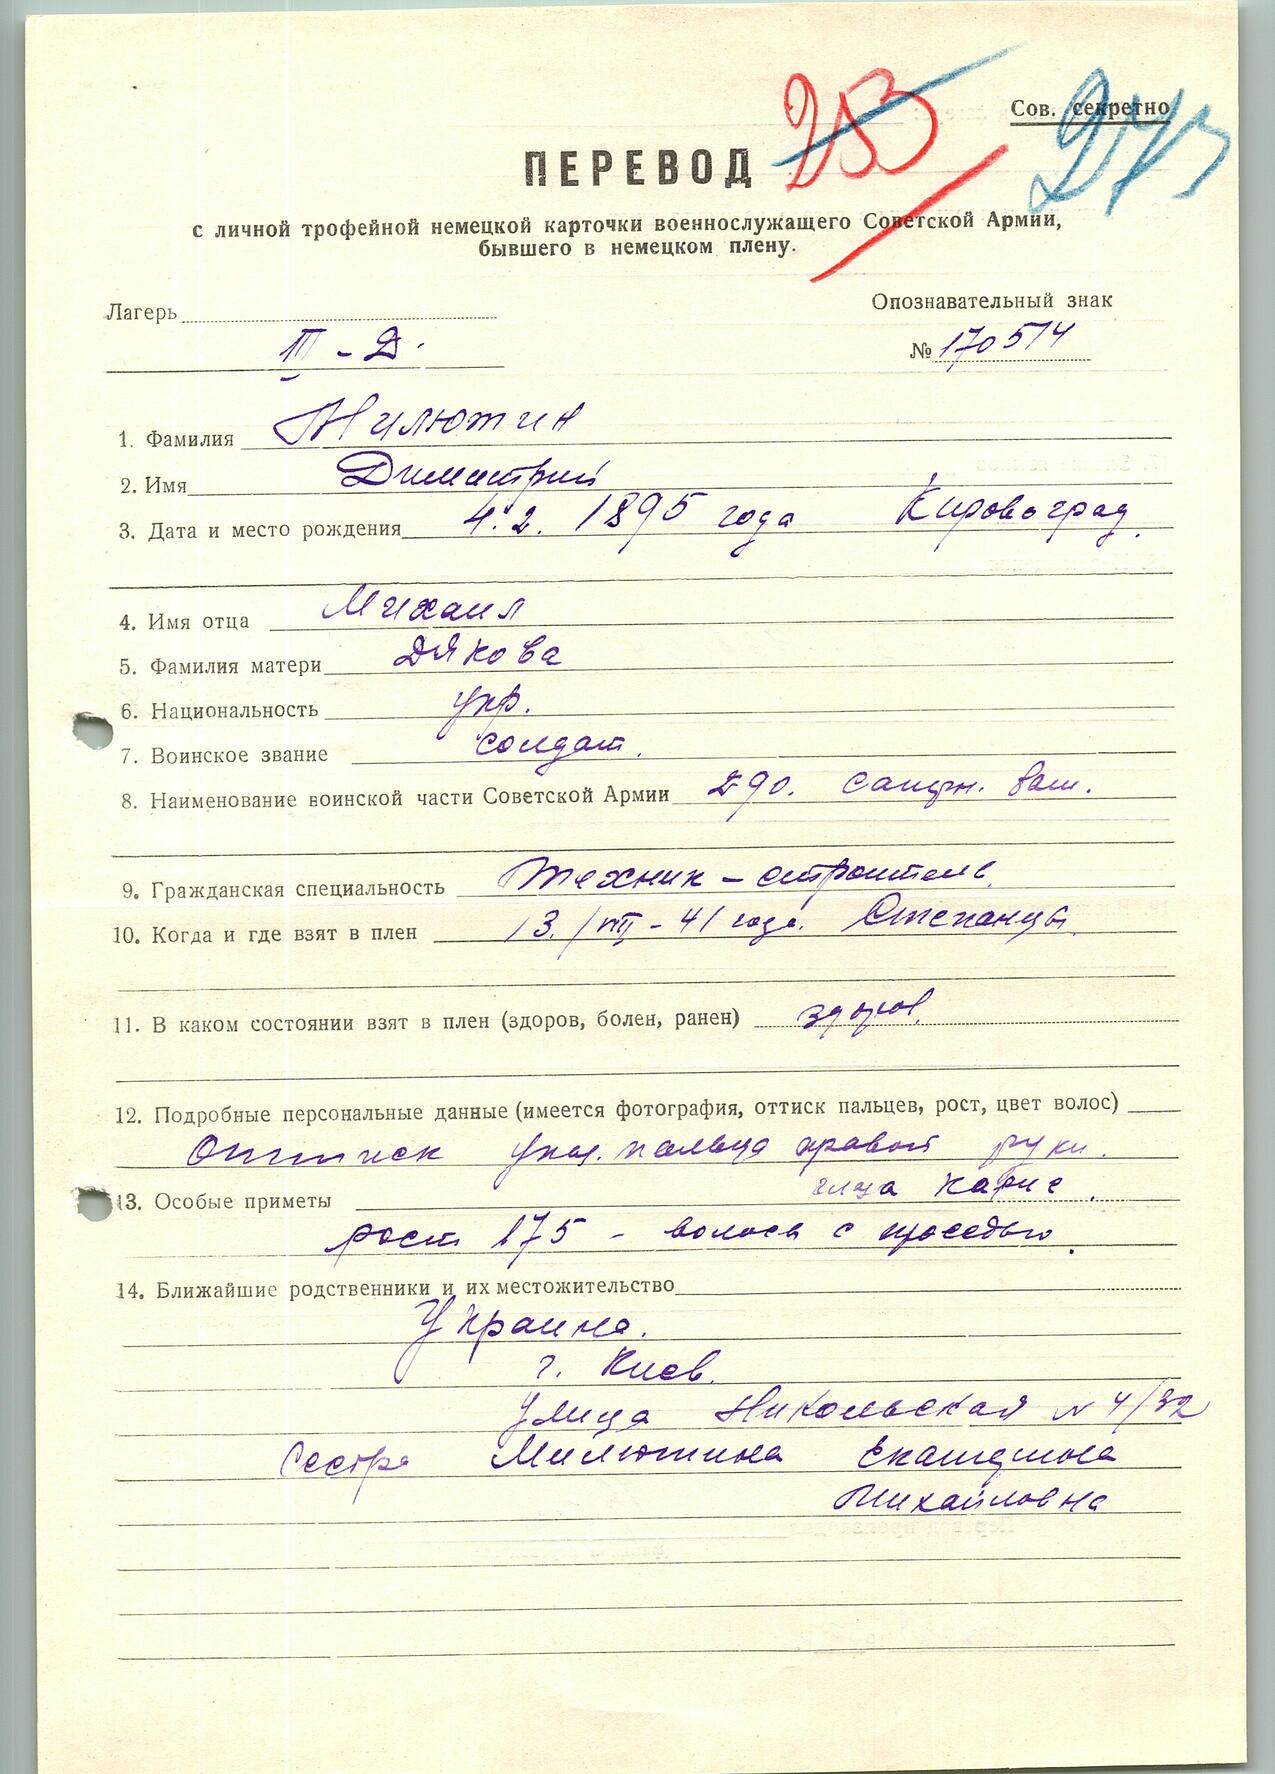 253
273
Сов. секретно
ПЕРЕВОД
с личной трофейной немецкой карточки военнослужащего Советской Армии,
бывшего в немецком плену.
Лагерь
Опознавательный знак
III - Д.
№ 170514
1. Фамилия Милютин
2. Имя Димитрий
3. Дата и место рождения 4.2. 1895 года Кировоград.
4. Имя отца Михаил
5. Фамилия матери Дякова
6. Национальность укр.
7. Воинское звание солдат.
8. Наименование воинской части Советской Армии 290. сапрн. бат.
9. Гражданская специальность Техник - строитель.
10. Когда и где взят в плен 13./VIII - 41 года. Степанцы.
11. В каком состоянии взят в плен (здоров, болен, ранен) здоров.
12. Подробные персональные данные (имеется фотография, оттиск пальцев, рост, цвет волос)
Оттиск указ. пальца правой руки.
13. Особые приметы глаза карие.
рост 175 - волосы с проседью.
14. Ближайшие родственники и их местожительство
Украина.
г. Киев.
Улица Никольская N 4/32
Сестра Милютина Екатерина
Михайловна